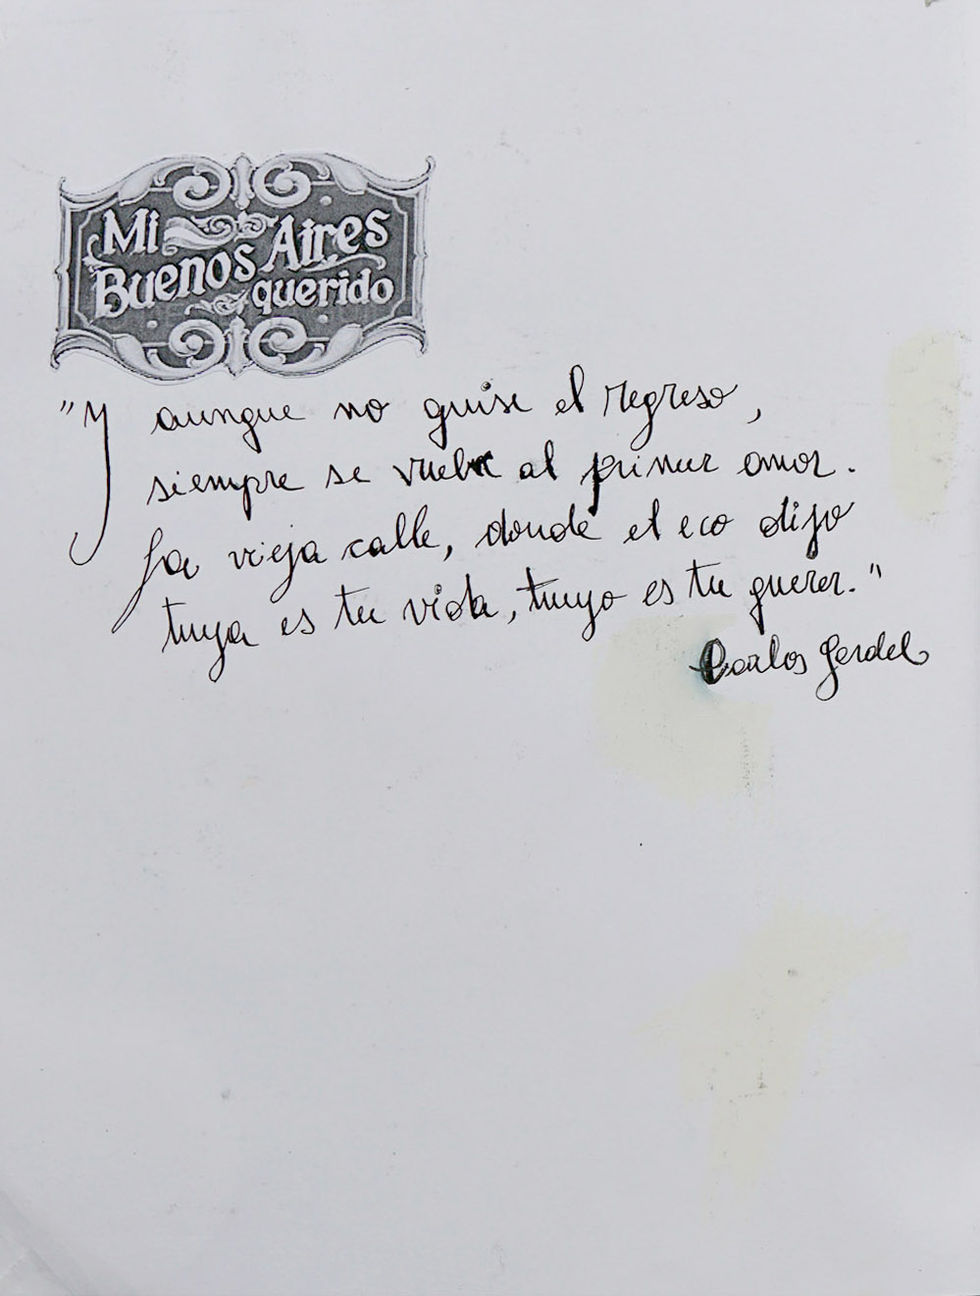 Mi
Buenos Aires
querido
"Y aunque no quise el regreso,
siempre se vuelve al primer amor.
La vieja calle, donde el eco dijo
tuya es tu vida, tuyo es tu querer."
Carlos Gardel